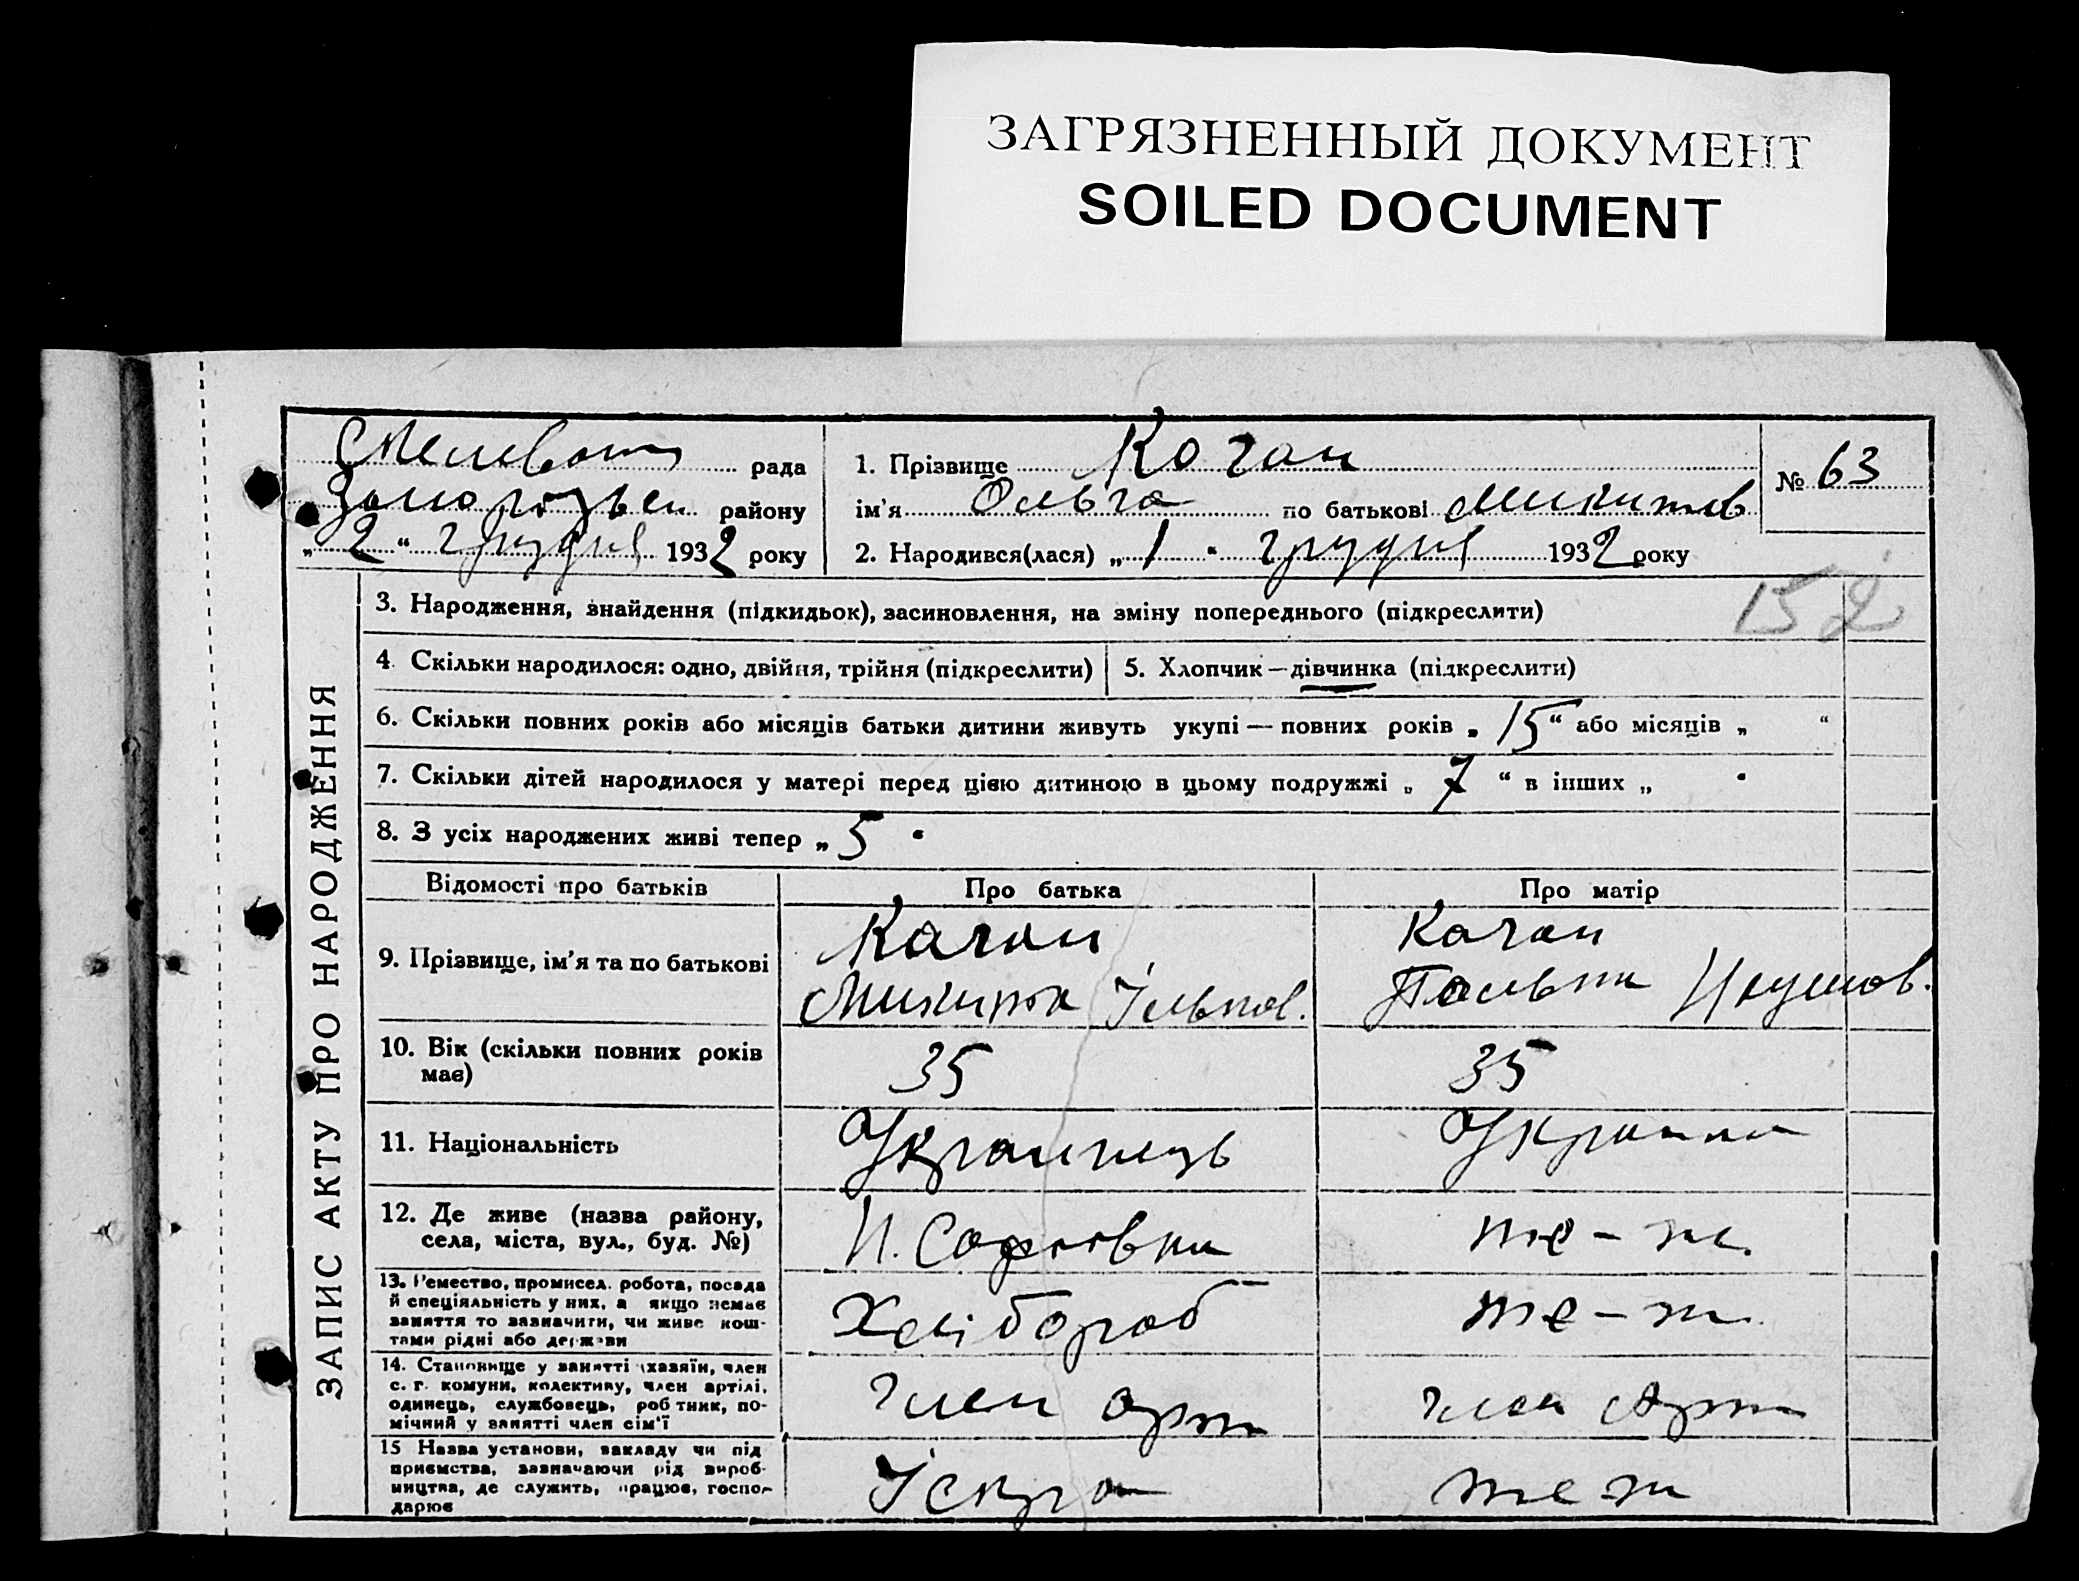 ЗАГРЯЗНЕННЫЙ ДОКУМЕНТ
SOILED DOCUMENT
рада
району
„ 2 “ Грудня 1932 року
1. Прізвище Качан
ім'я Ольга по батькові Микитов
2. Народився(лася) „ 1 “ грудня 1932 року
№ 63
152
ЗАПИС АКТУ ПРО НАРОДЖЕННЯ
3. Народження, знайдення (підкидьок), засиновлення, на зміну попереднього (підкреслити)
4. Скільки народилося: одно, двійня, трійня (підкреслити)
5. Хлопчик — дівчинка (підкреслити)
6. Скільки повних років або місяців батьки дитини живуть укупі — повних років „ 15 “ або місяців „ “
7. Скільки дітей народилося у матері перед цією дитиною в цьому подружжі „ 7 “ в інших „ “
8. З усіх народжених живі тепер „ 5 “
Відомості про батьків
Про батька
Про матір
9. Прізвище, ім'я та по батькові
Качан
Микита Ільков.
Качан
10. Вік (скільки повних років
має)
35
35
11. Національність
Українець
Україн
12. Де живе (назва району,
села, міста, вул., буд. №)
Н. Софіївка
те - ж.
13. Ремество, промисел. робота, посада
й спеціяльність у них, а якщо немає
заняття то зазначити, чи живе кош-
тами рідні або держави
Хлібороб
те - ж.
14. Становище у занятті (хазяїн, член
с. г. комуни, колективу, член артілі,
одинець, службовець, робітник, по-
мічний у занятті член сім'ї
член арт
член Арт
15 Назва установи, закладу чи під
приємства, зазначаючи рід вироб-
ництва, де служить, працює, госпо-
дарює
Іскра
те ж